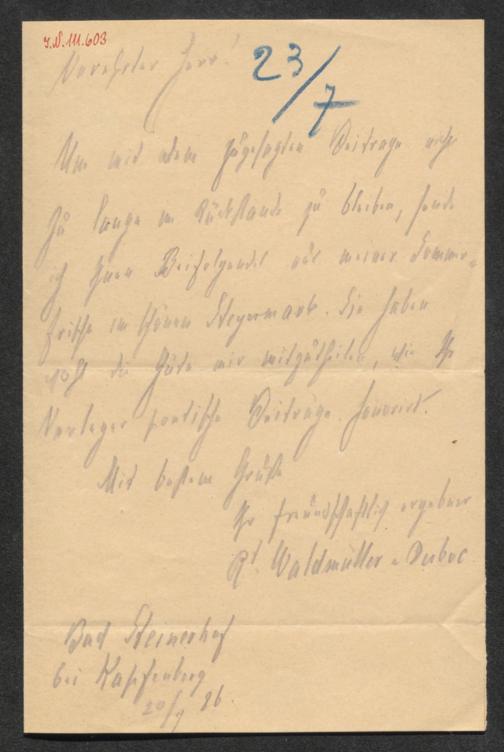 J.N. 111.603
Verehrter Herr!
23/7
Um mit dem zugesagten Beitrage nicht
zu lange im Rückstande zu bleiben, sende
ich Ihnen Beifolgendes aus meiner Sommer-
frische im schönen Steyermark. Sie haben
wohl die Güte mir mitzutheilen, wie Ihr
Verleger poetische Beiträge honorirt.
Mit bestem Gruße
Ihr freundschaftlich ergebner
Rt Waldmüller-Duboc
Bad Steinerhof
bei Kapfenberg
20/7 86.